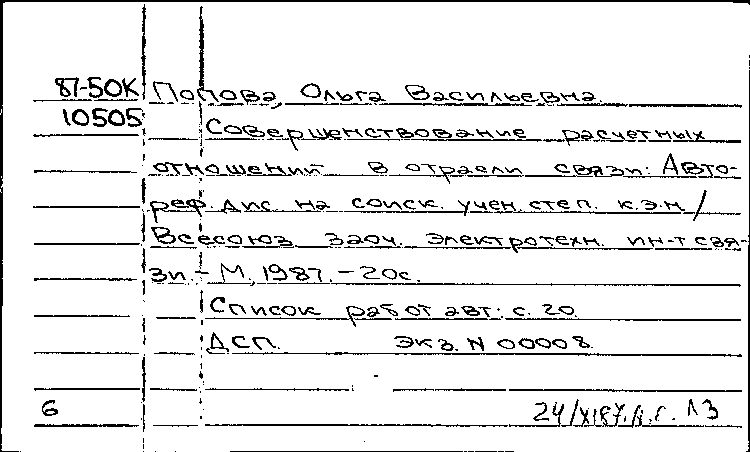 87-50К Попова, Ольга Васильевна
10505 Совершенствование расчетных
отношений в отрасли связи: Авто-
реф. дис. на соиск. учен. степ. к.э.н. /
Всесоюз. заоч. электротехн. ин-т свя-
зи. - М., 1987. - 20с.
Список работ авт.: с. 20
ДСП. Экз. N 00008
6 24/XI87г.